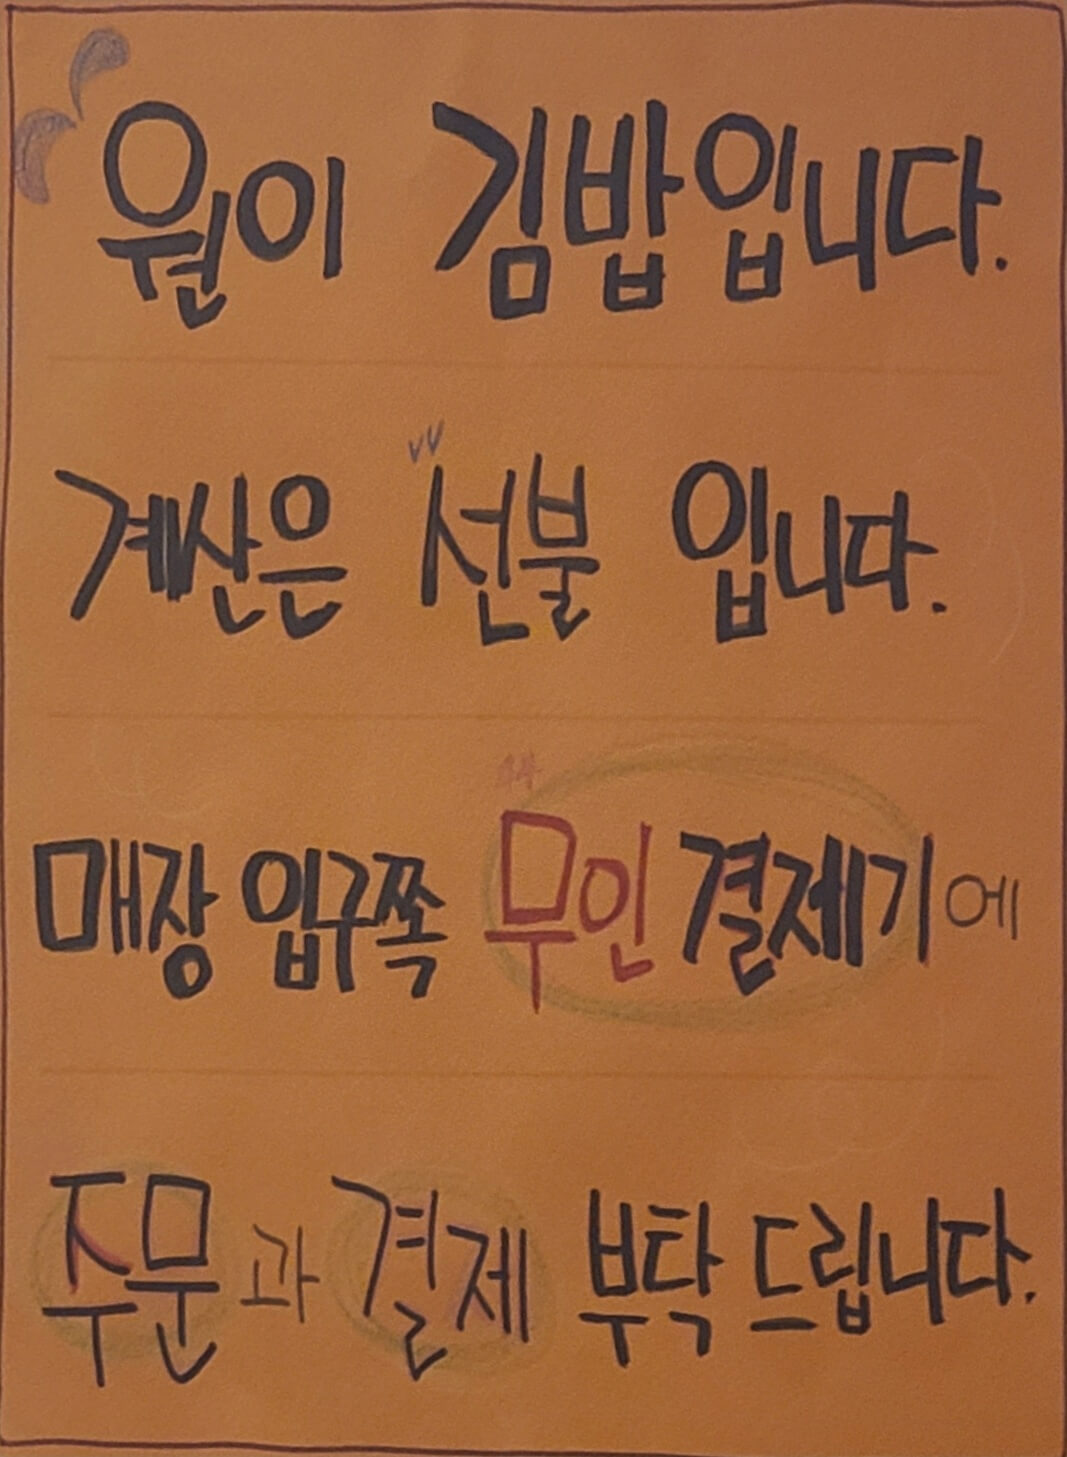 원이 김밥입니다.
계산은 선불 입니다.
매장 입구쪽 무인 결제기에
주문과 결제 부탁 드립니다.